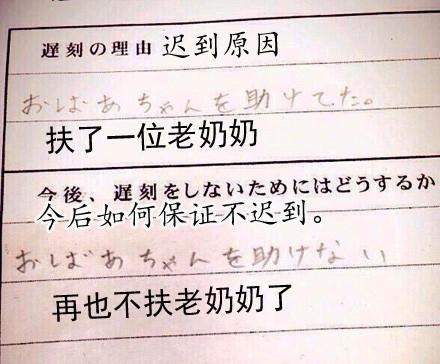 遅刻の理由 迟到原因
おばあちゃんを助けてた。
扶了一位老奶奶
今後、遅刻をしないためにはどうするか
今后如何保证不迟到。
おばあちゃんを助けない
再也不扶老奶奶了